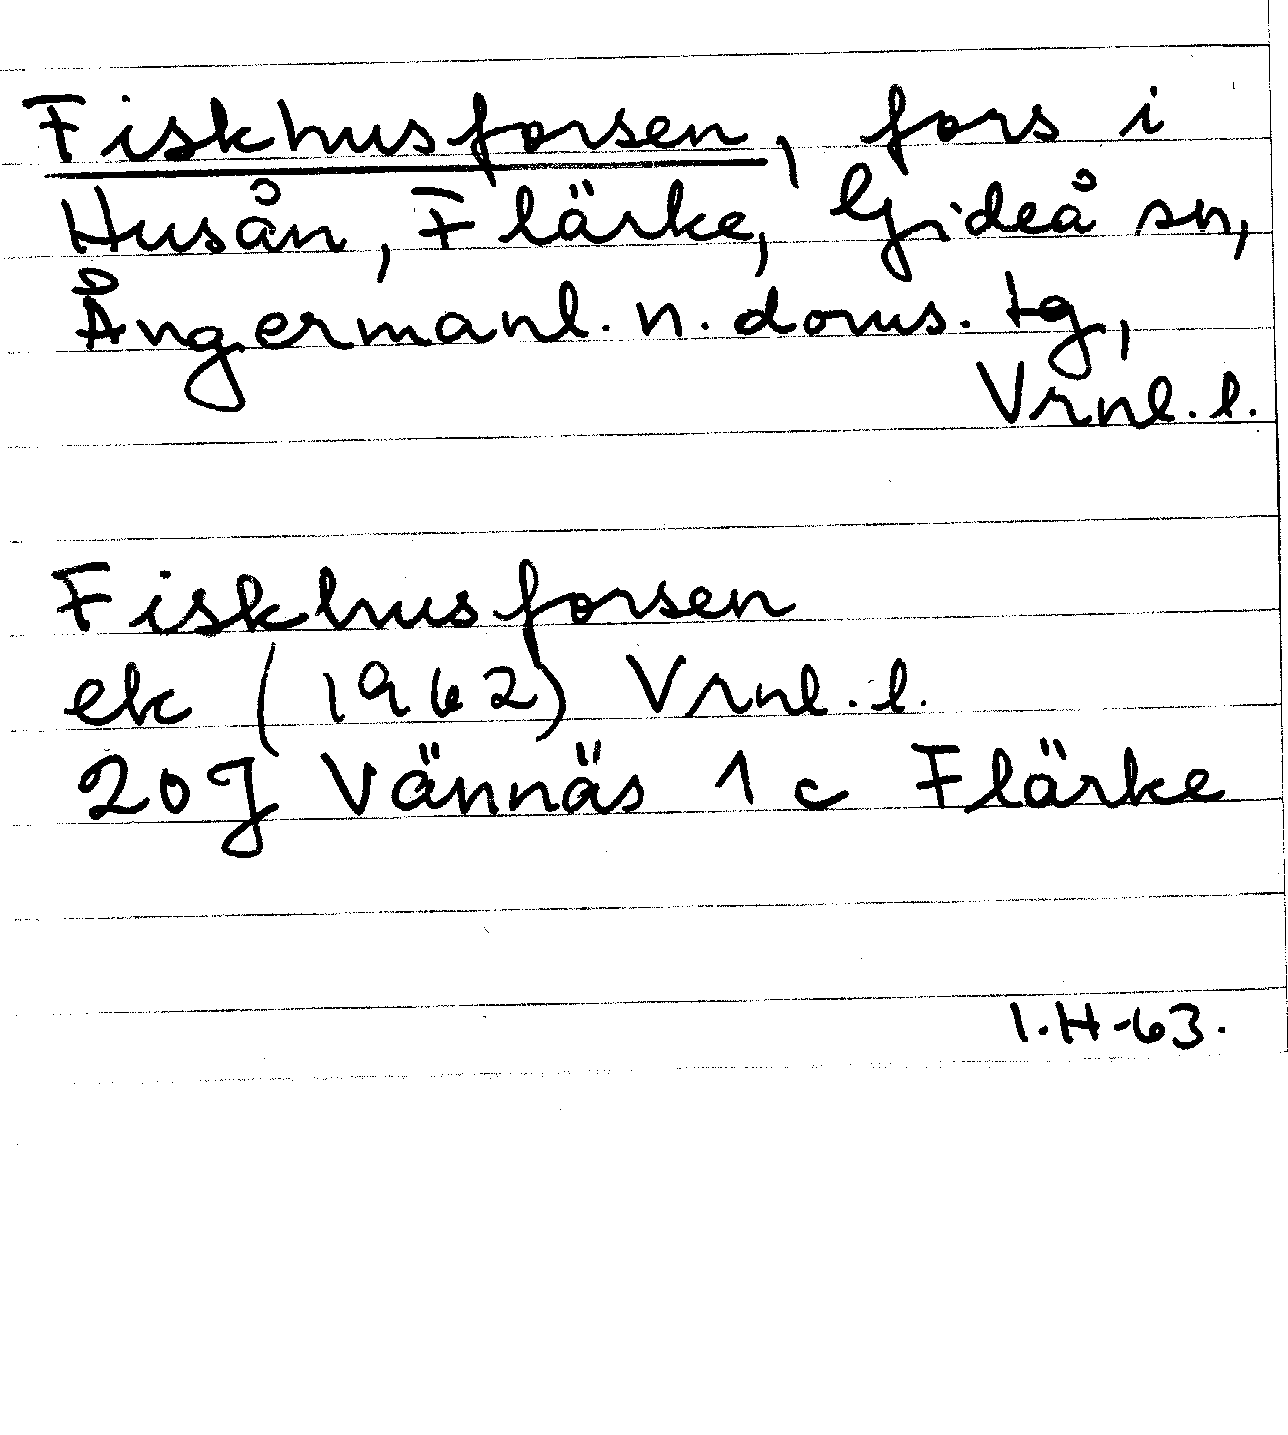 Fiskhusforsen, fors i
Husån, Flärke, Gideå sn,
Ångermanl. n. doms. tg,
Vrnl. l.
Fiskhusforsen
ek (1962) Vrnl. l.
20J Vännäs 1 c Flärke
I.H-63.